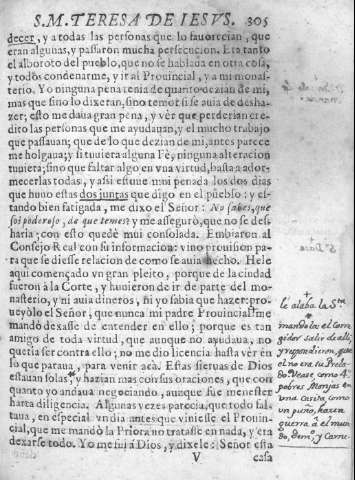 S. M. TERESA DE IESVS. 305
decer, y a todas las personas que lo fauorecian, que
eran algunas, y passaron mucha persecucion. Era tanto
el alboroto del pueblo, que no se hablaua en otra cosa,
y todos condenarme, y ir al Prouincial, y a mi monas-
terio. Yo ninguna pena tenia de quanto dezian de mi,
mas que sino lo dixeran, sino temor si se auia de desha-
zer; esto me daua gran pena, y vèr que perderian cre-
dito las personas que me ayudauan, y el mucho trabajo
que passauan; que de lo que dezian de mi, antes parece
me holgaua; y si tuuiera alguna Fè, ninguna alteracion
tuuiera; sino que faltar algo en vna virtud, basta a ador-
mecerlas todas, y assi estuue mui penada los dos dias
que huuo estas dos juntas que digo en el pueblo: y es-
tando bien fatigada, me dixo el Señor: No sabes, que
soi poderoso, de que temes? y me asseguró, que no se des-
haria; con esto quedè mui consolada. Embiaron al
Consejo Real con su informacion: vino prouision pa-
ra que se diesse relacion de como se auia hecho. Hele
aqui començado vn gran pleito, porque de la ciudad
fueron à la Corte, y huuieron de ir de parte del mo-
nasterio, y ni auia dineros, ni yo sabia que hazer: pro-
ueyòlo el Señor, que nunca mi padre Prouincial me
mandò dexasse de entender en ello; porque es tan
amigo de toda virtud, que aunque no ayudaua, no
queria ser contra ello; no me dio licencia hasta vèr en
lo que paraua, para venir acà. Estas sieruas de Dios
estauan solas, y hazian mas con sus oraciones, que con
quanto yo andaua negociando, aunque fue menester
harta diligencia. Algunas vezes parecia, que todo fal-
taua, en especial vn dia antes que viniesse el Prouin-
cial, que me mandò la Priora no tratasse en nada, y era
dexarse todo. Yo me fui à Dios, y dixele: Señor esta
V casa
le alaba la Sta
mandola el corre
gidor salir de alli,
y respondieron, que
el no era su Prela-
do. Vease como 4
pobres Monjas en
una Casita como
un puño, hazen
guerra â el mun
do, demo, y Carne